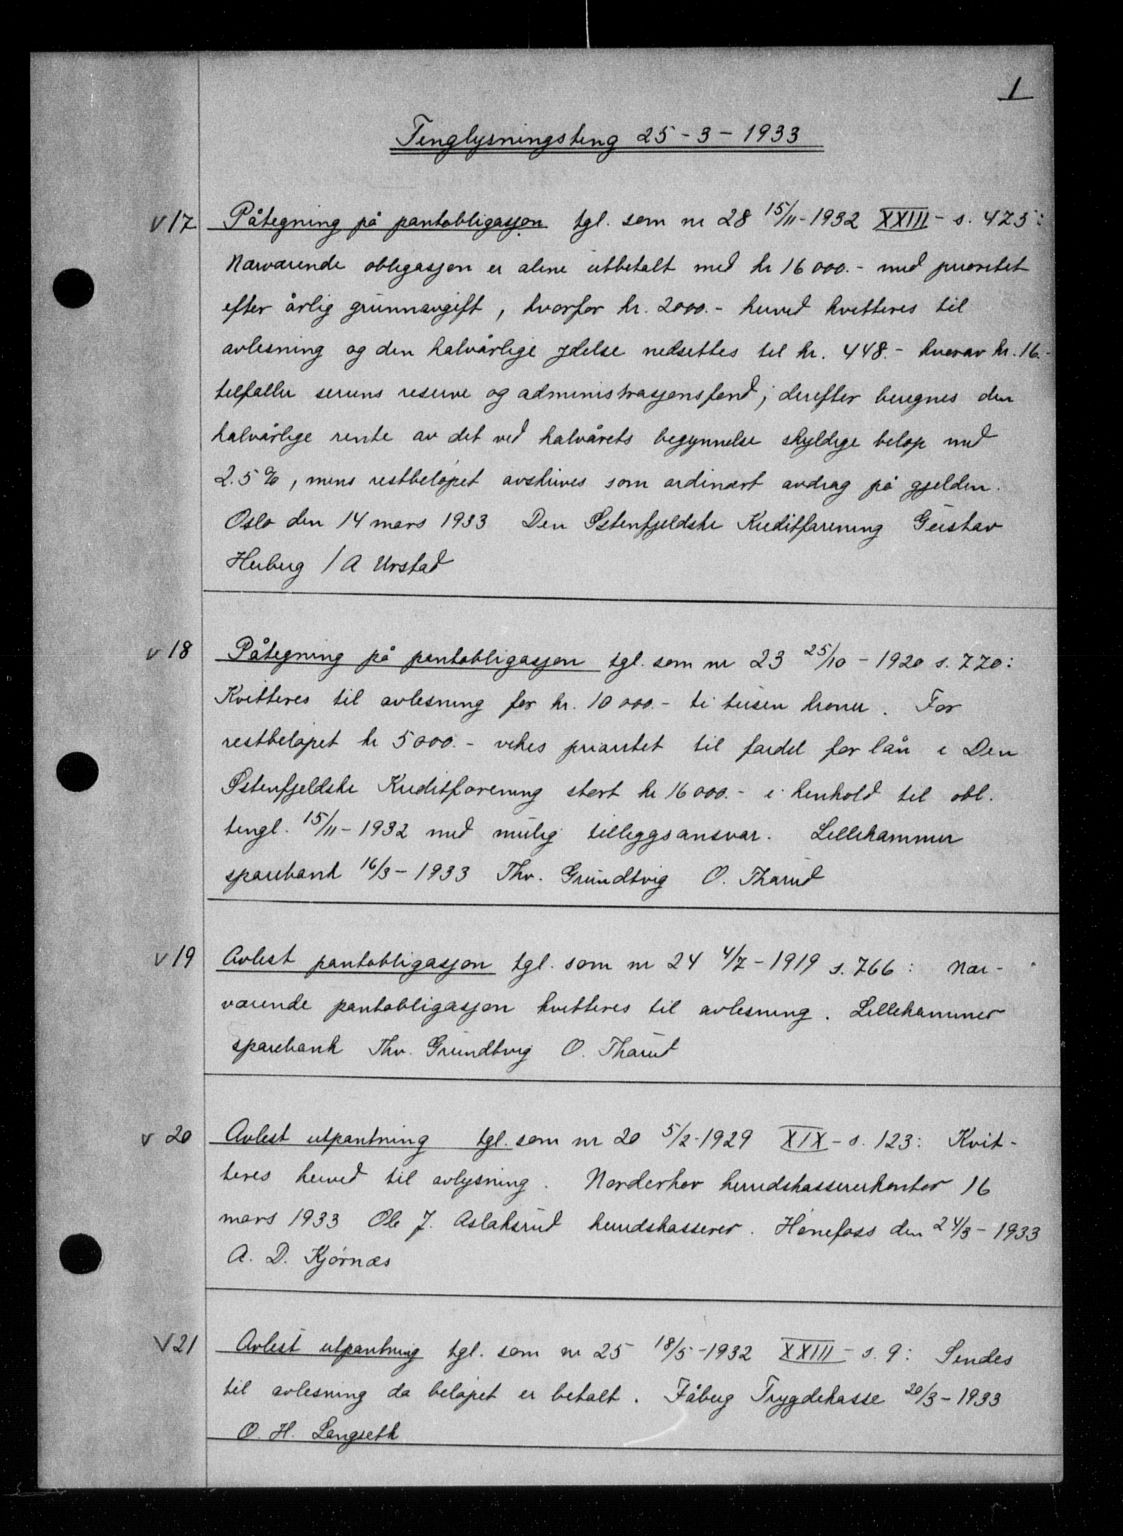 1
Tinglysningsting 25-3-1933
v 17 Påtegning på pantobligasjon tgl. som nr 28 15/11-1932 XXIII - s. 475:
Nærværende obligasjon er alene utbetalt med kr 16 000.- med prioritet
efter årlig grunnavgift, hvorfor kr. 2000.- herved kvitteres til
avlesning og den halvårlige ydelse nedsettes til kr. 448.- hvorav kr. 16.-
tilfaller seriens reserve og administrasjonsfond; derefter beregnes den
halvårlige rente av det ved halvårets begynnelse skyldige beløp med
2.5 %, mens restbeløpet avskrives som ordinært avdrag på gjelden.
Oslo den 14 mars 1933 Den Østenfjeldske Kreditforening Gustav
Herberg / A Urstad
v 18 Påtegning på pantobligasjon tgl. som nr 23 25/10 - 1920 s. 770:
Kvitteres til avlesning for kr. 10 000.- ti tusen kroner. For
restbeløpet kr 5000.- vikes prioritet til fordel for lån i Den
Østenfjeldske Kreditforening stort kr 16000.- i henhold til obl.
tingl. 15/11-1932 med mulig tilleggsansvar. Lillehammer
sparebank 16/3-1933 Thv. Grundtvig O. Tharud
v 19 Avlest pantobligasjon tgl. som nr 24 4/7-1919 s. 766: Nær-
værende pantobligasjon kvitteres til avlesning. Lillehammer
sparebank Thv. Grundtvig O. Tharud
v 20 Avlest utpantning tgl. som nr 20 5/2-1929 XIX - s. 123: Kvit-
teres herved til avlysning. Norderhov herredskassererkontor 16
mars 1933 Ole J. Aslaksrud herredskasserer. Hønefoss den 24/3-1933
A. D. Kjørnæs
v 21 Avlest utpantning tgl. som nr 25 18/5-1932 XXIII - s. 9: Sendes
til avlesning da beløpet er betalt. Fåberg Trygdekasse 20/3-1933
O. H. Langseth